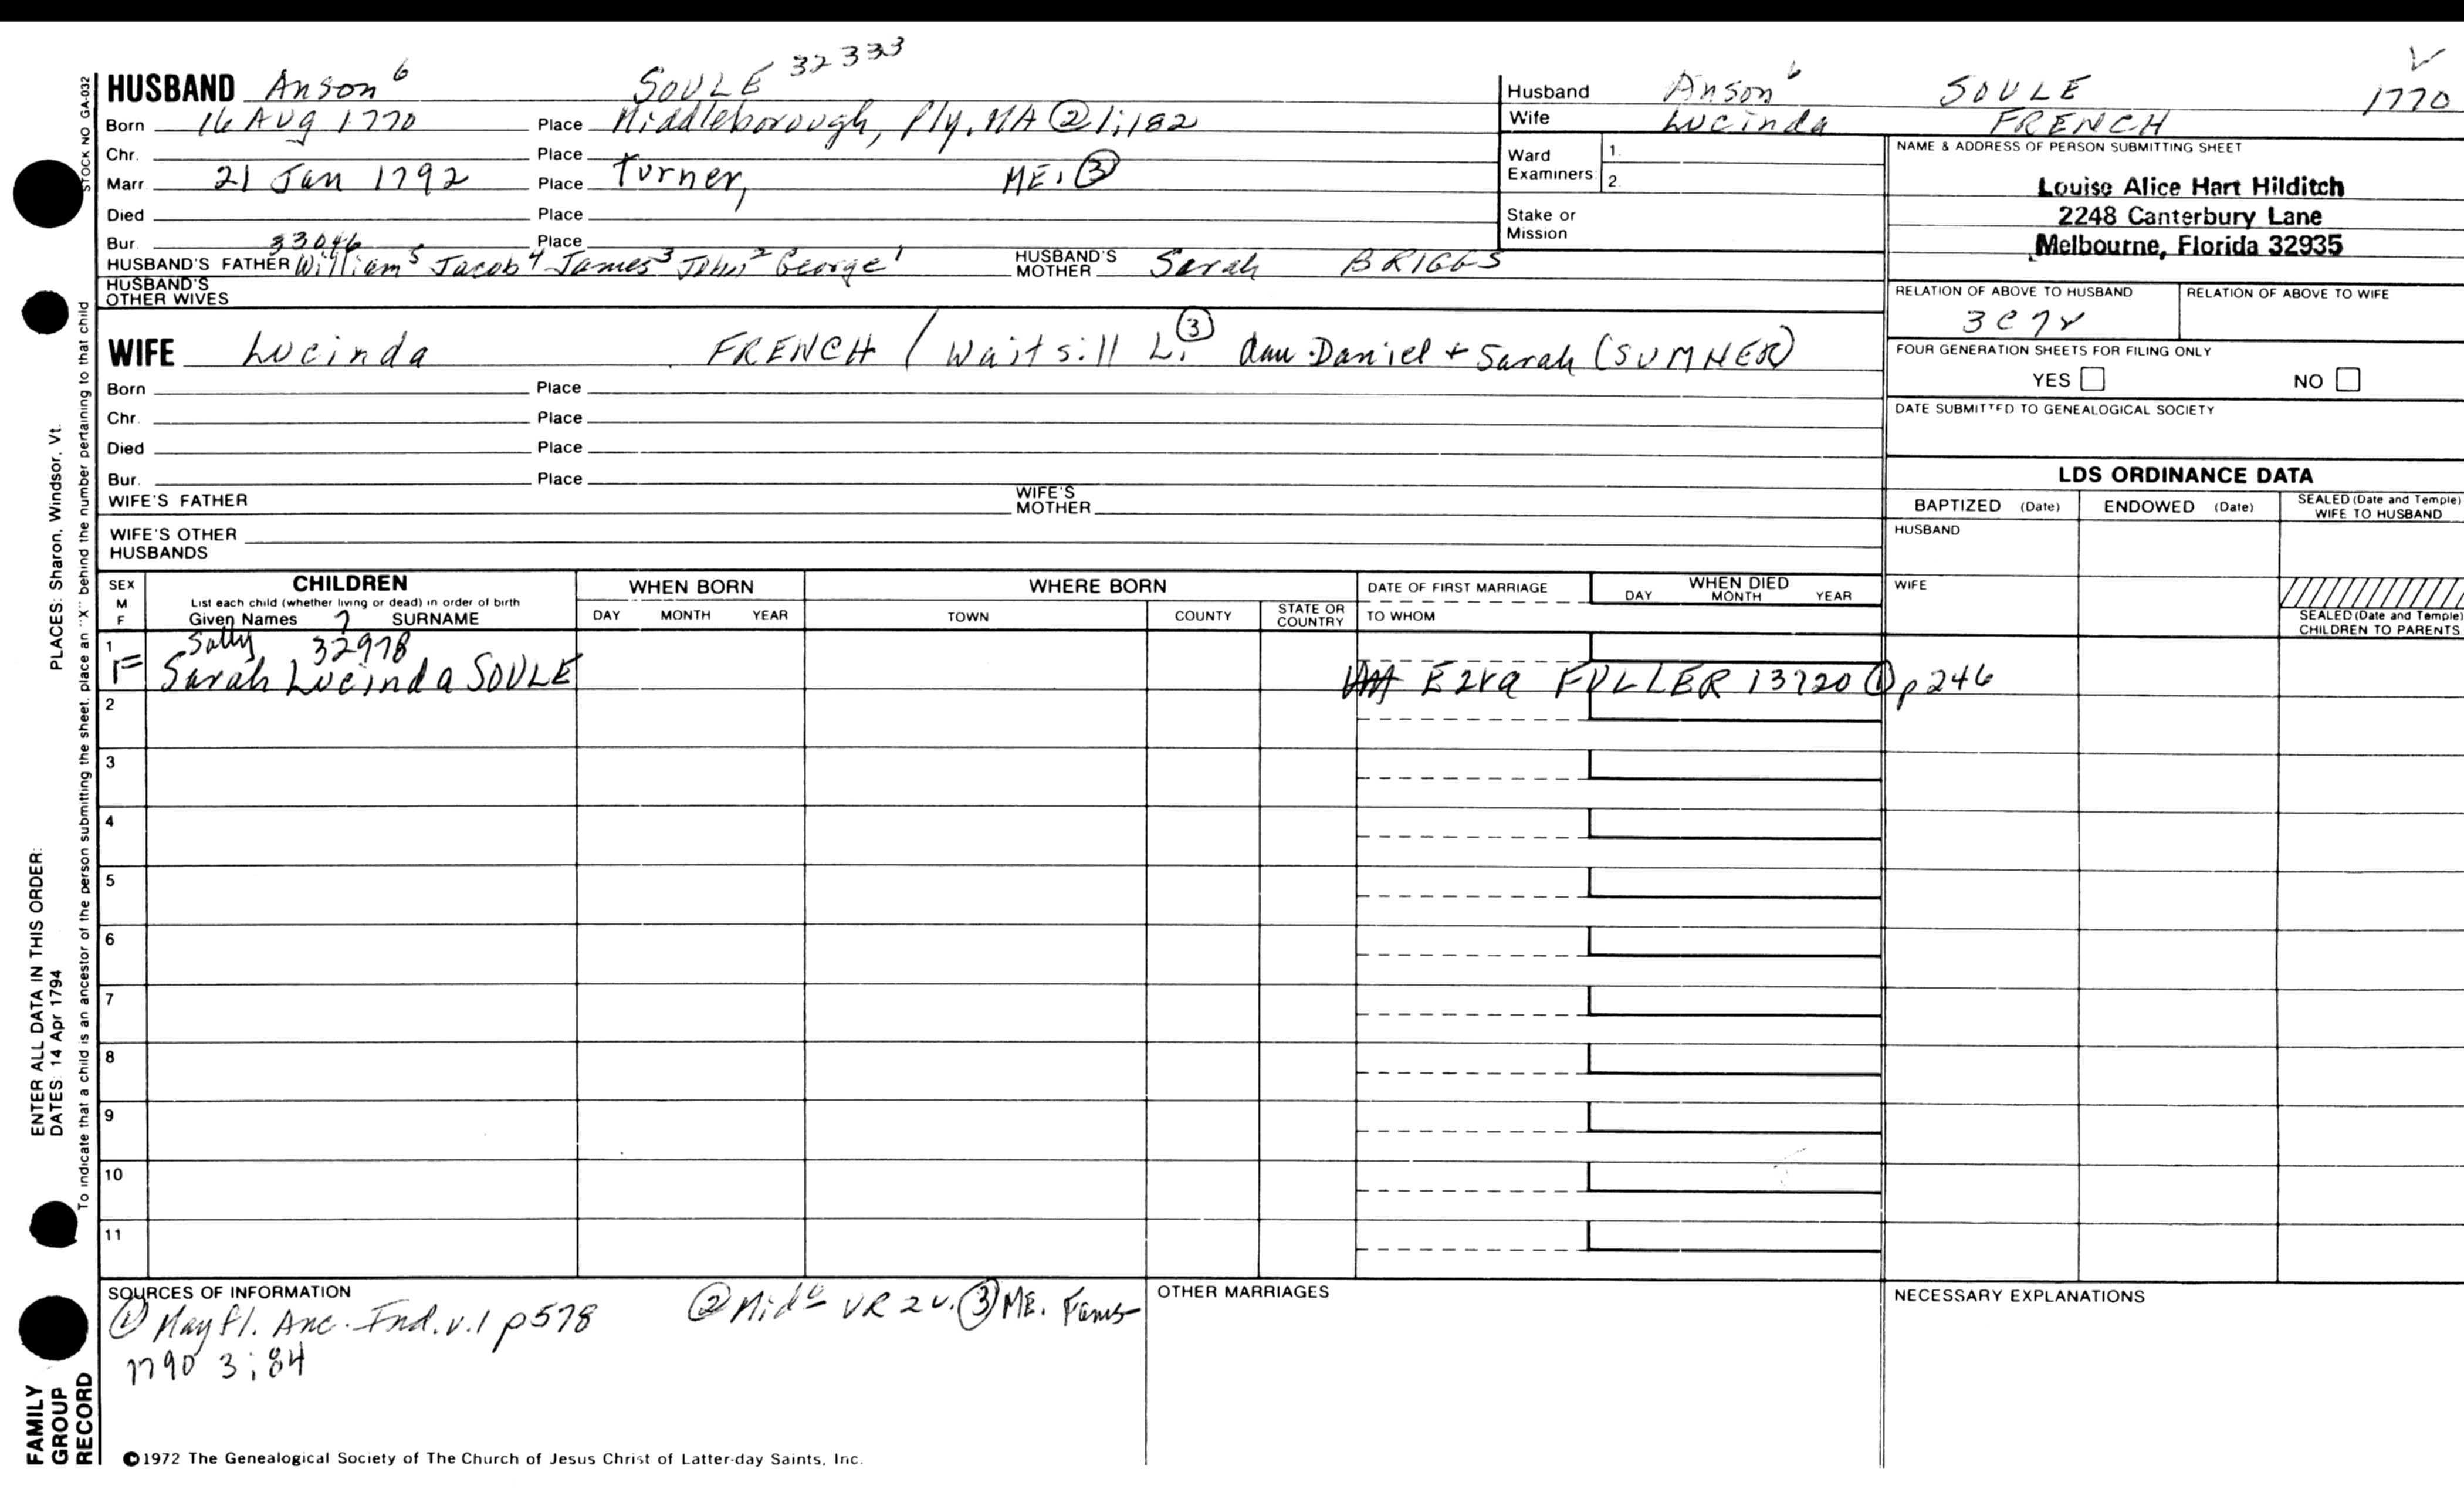 HUSBAND Anson 6 SOULE 32333
Born 16 Aug 1770 Place Middleborough, Ply, MA ② 1;182
Chr. Place
Marr. 21 Jan 1792 Place Turner, ME. ③
Died Place
Bur. Place
33046
HUSBAND'S FATHER William 5 Jacob 4 James 3 John 2 George 1 HUSBAND'S MOTHER Sarah BRIGGS
HUSBAND'S OTHER WIVES
WIFE Lucinda FRENCH / Waitsill L. ③ dau. Daniel + Sarah (SUMNER)
Born Place
Chr. Place
Died Place
Bur. Place
WIFE'S FATHER WIFE'S MOTHER
WIFE'S OTHER HUSBANDS
Husband Anson 6 SOULE 1770
Wife Lucinda FRENCH
Ward Examiners 1.
2.
Stake or Mission
NAME & ADDRESS OF PERSON SUBMITTING SHEET
Louise Alice Hart Hilditch
2248 Canterbury Lane
Melbourne, Florida 32935
RELATION OF ABOVE TO HUSBAND RELATION OF ABOVE TO WIFE
3C7r
FOUR GENERATION SHEETS FOR FILING ONLY
YES NO
DATE SUBMITTED TO GENEALOGICAL SOCIETY
LDS ORDINANCE DATA
BAPTIZED (Date) ENDOWED (Date) SEALED (Date and Temple) WIFE TO HUSBAND
HUSBAND
WIFE
SEALED (Date and Temple) CHILDREN TO PARENTS
SEX M F
CHILDREN
List each child (whether living or dead) in order of birth
Given Names 7 SURNAME
WHEN BORN
DAY MONTH YEAR
WHERE BORN
TOWN COUNTY STATE OR COUNTRY
DATE OF FIRST MARRIAGE
TO WHOM
WHEN DIED
DAY MONTH YEAR
1 Sally 32978
F Sarah Lucinda SOULE Ezra FULLER 13720 ① p246
2
3
4
5
6
7
8
9
10
11
SOURCES OF INFORMATION
① Mayfl. Anc. Ind. v.1 p578 ② Mido VR 2v. ③ ME. Fams
1790 3;84
OTHER MARRIAGES
NECESSARY EXPLANATIONS
©1972 The Genealogical Society of The Church of Jesus Christ of Latter-day Saints, Inc.
STOCK NO GA-032
To indicate that a child is an ancestor of the person submitting the sheet, place an "X" behind the number pertaining to that child
PLACES: Sharon, Windsor, Vt.
ENTER ALL DATA IN THIS ORDER:
DATES: 14 Apr 1794
FAMILY GROUP RECORD